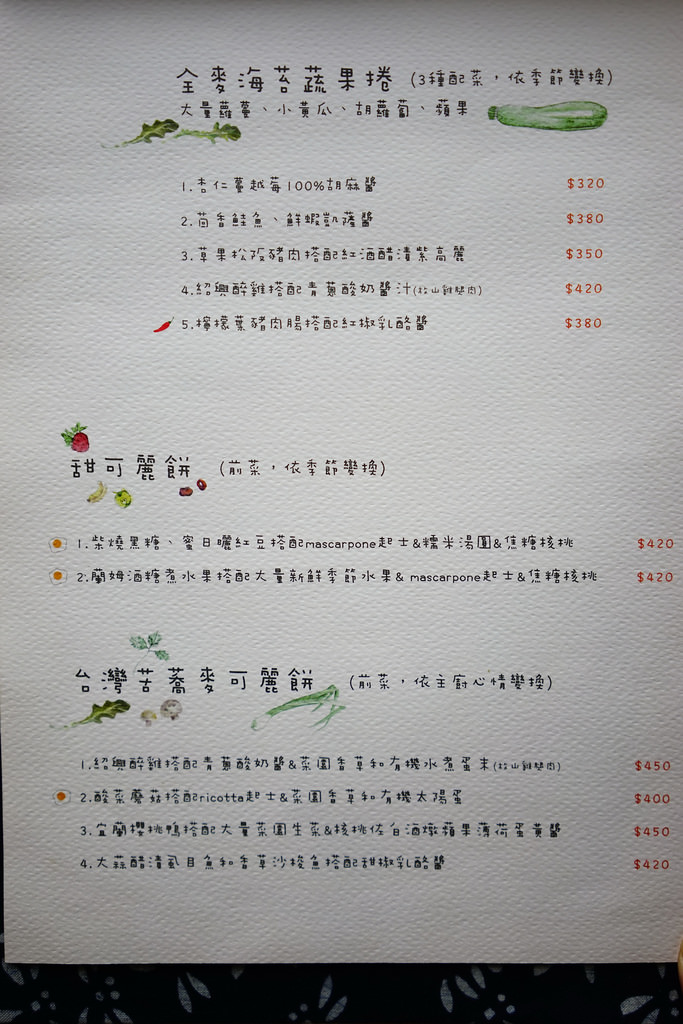 全麥海苔蔬果捲 (3種配菜,依季節變換)
大量蘿蔓、小黃瓜、胡蘿蔔、蘋果
1.杏仁蔓越莓100%胡麻醬 $320
2.茴香鮭魚、鮮蝦凱薩醬 $380
3.草果松阪豬肉搭配紅酒醋漬紫高麗 $350
4.紹興醉雞搭配青蔥酸奶醬汁(放山雞腿肉) $420
5.檸檬葉豬肉腸搭配紅椒乳酪醬 $380
甜可麗餅 (前菜,依季節變換)
1.柴燒黑糖、蜜日曬紅豆搭配mascarpone起士&糯米湯圓&焦糖核桃 $420
2.蘭姆酒糖煮水果搭配大量新鮮季節水果& mascarpone起士&焦糖核桃 $420
台灣苦蕎麥可麗餅 (前菜,依主廚心情變換)
1.紹興醉雞搭配青蔥酸奶醬&菜園香草和有機水煮蛋末(放山雞腿肉) $450
2.酸菜蘑菇搭配ricotta起士&菜園香草和有機太陽蛋 $400
3.宜蘭櫻桃鴨搭配大量菜園生菜&核桃佐白酒燉蘋果薄荷蛋黃醬 $450
4.大蒜醋漬虱目魚和香草沙梭魚搭配甜椒乳酪醬 $420